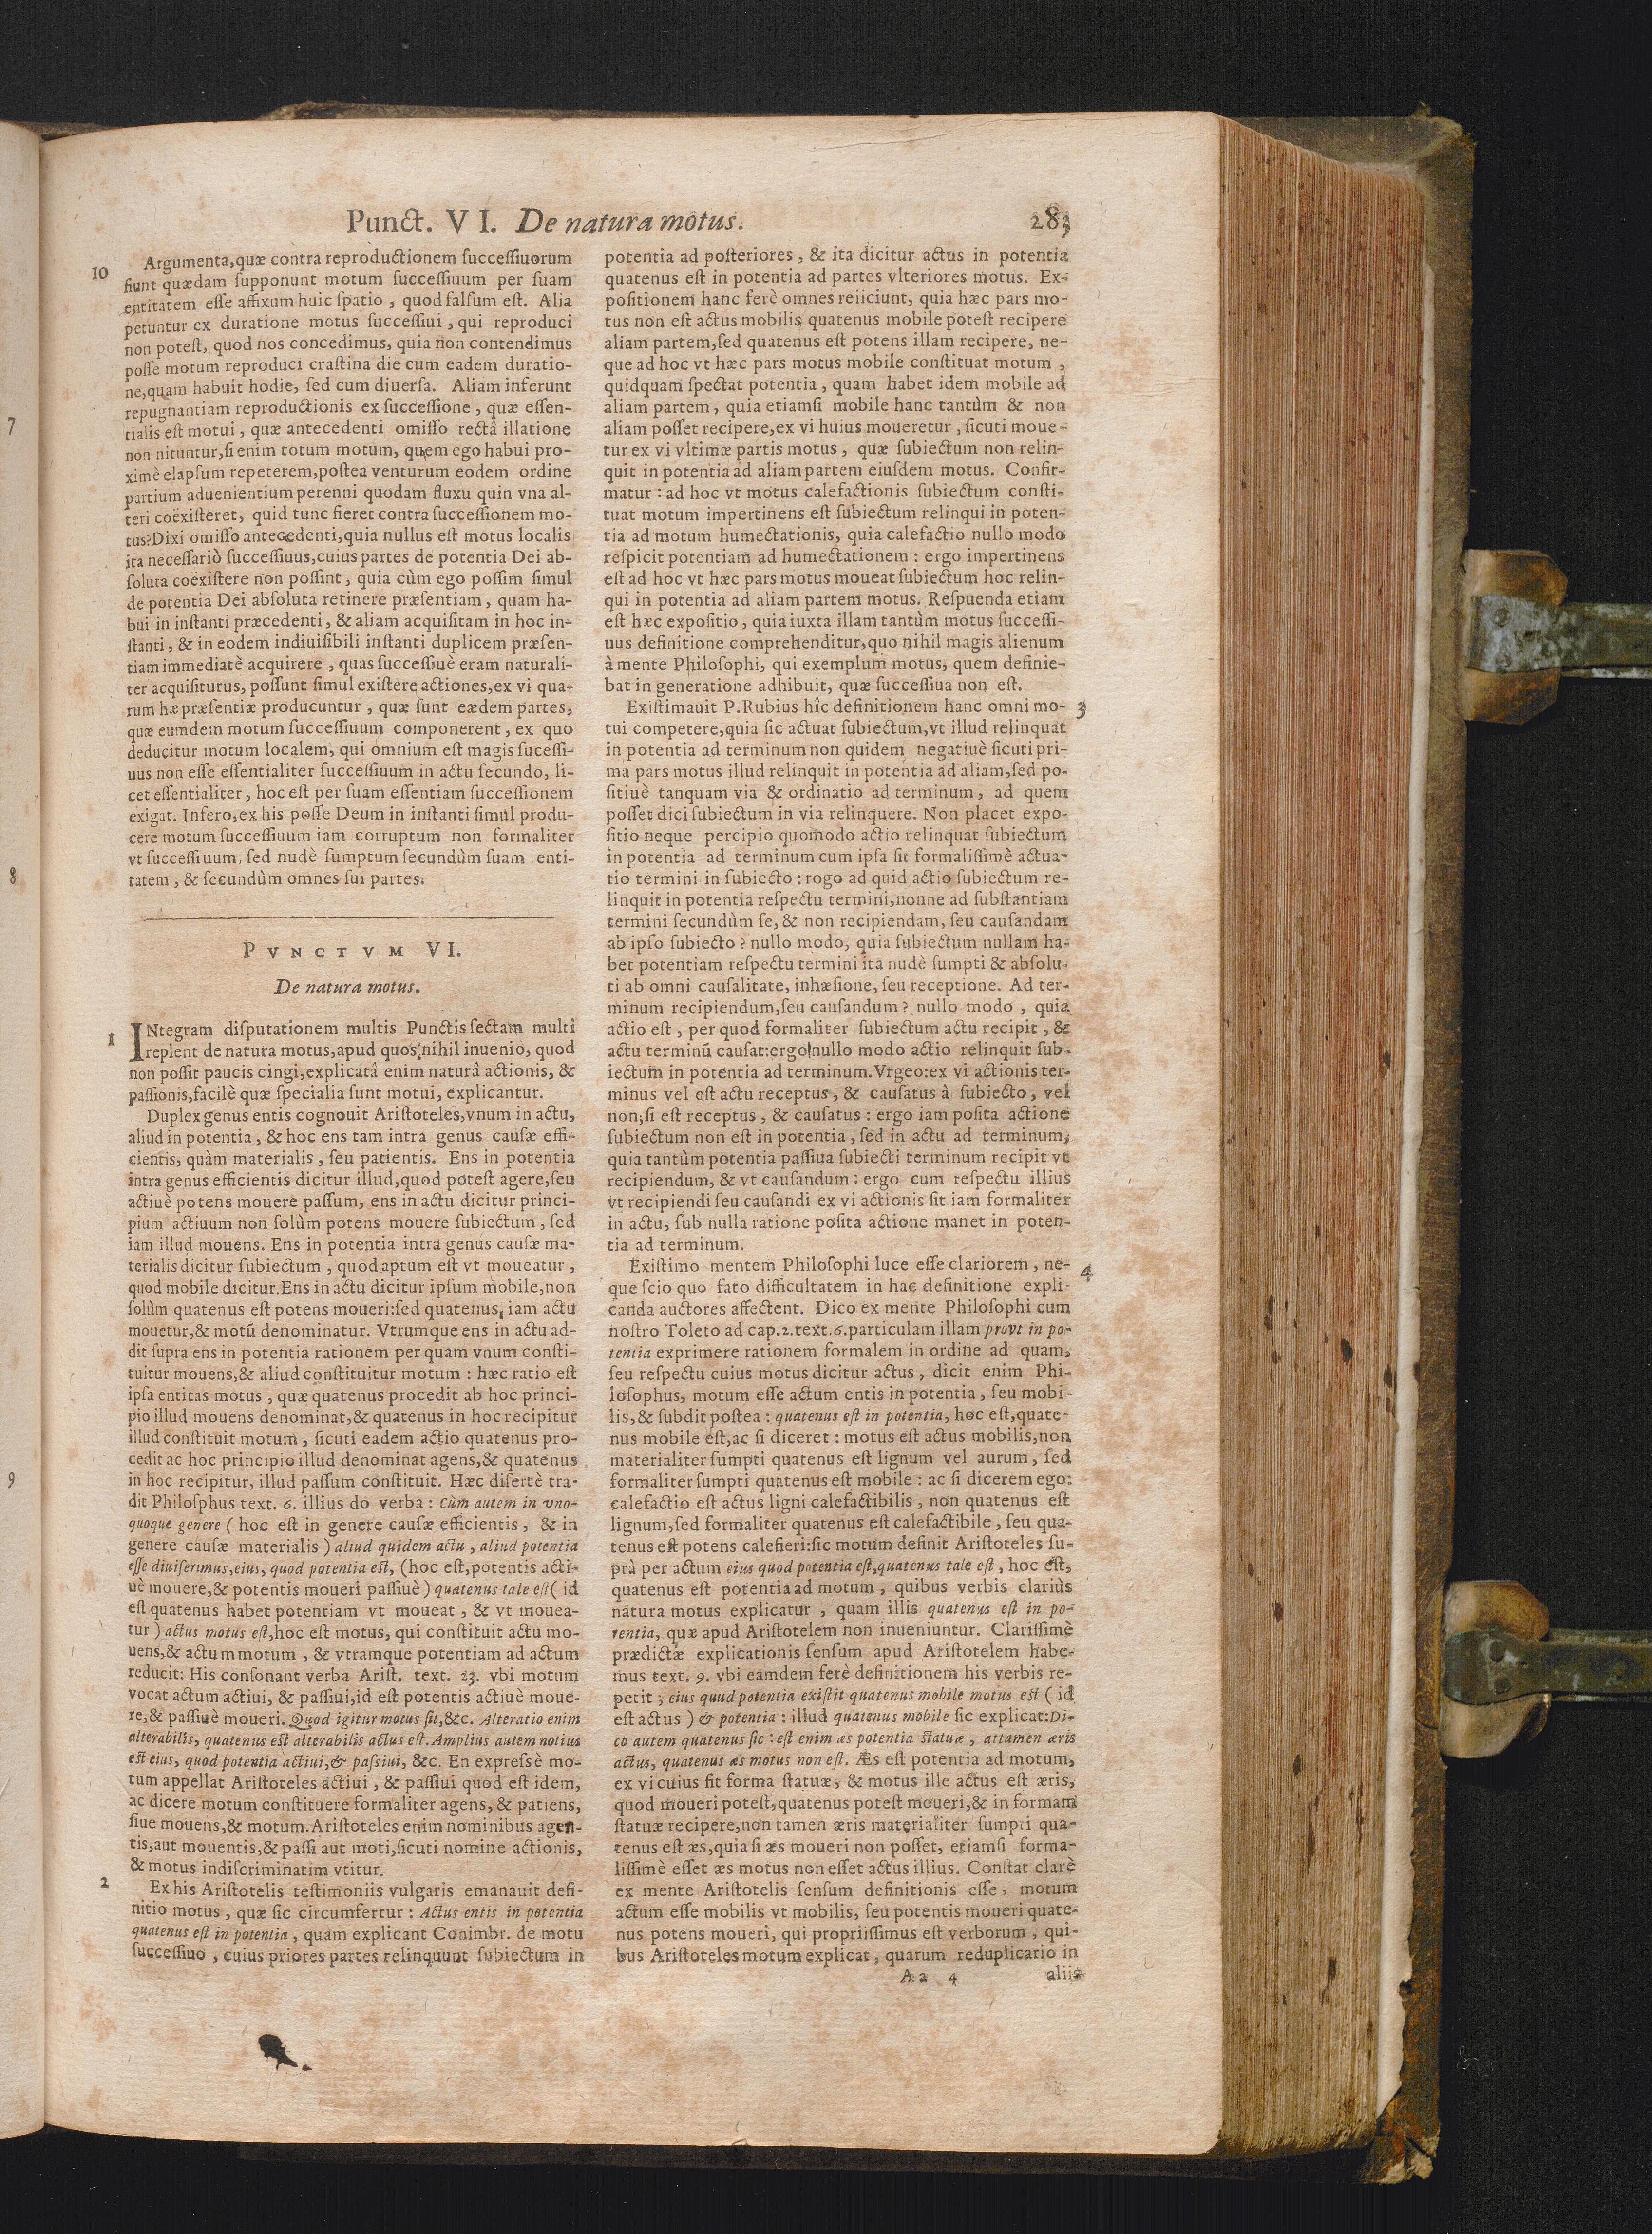 Punct. VI. De natura motus.
283
10
Argumenta,quæ contra reproductionem ſucceſſiuorum
fiunt quædam ſupponunt motum ſucceſſiuum per ſuam
entitatem eſſe affixum huic ſpatio , quod falſum eſt. Alia
petuntur ex duratione motus ſucceſſiui , qui reproduci
non poteſt, quod nos concedimus, quia non contendimus
poſſe motum reproduci craſtina die cum eadem duratio-
ne,quam habuit hodie, ſed cum diuerſa. Aliam inferunt
repugnantiam reproductionis ex ſucceſſione , quæ eſſen-
tialis eſt motui , quæ antecedenti omiſſo rectâ illatione
non nituntur,ſi enim totum motum, quem ego habui pro-
ximè elapſum repeterem,poſtea venturum eodem ordine
partium aduenientium perenni quodam fluxu quin vna al-
teri coëxiſteret, quid tunc fieret contra ſucceſſionem mo-
tus?Dixi omiſſo antecedenti,quia nullus eſt motus localis
ita neceſſariò ſucceſſiuus,cuius partes de potentia Dei ab-
ſoluta coëxiſtere non poſſint , quia cùm ego poſſim ſimul
de potentia Dei abſoluta retinere præſentiam , quam ha-
bui in inſtanti præcedenti , & aliam acquiſitam in hoc in-
ſtanti , & in eodem indiuiſibili inſtanti duplicem præſen-
tiam immediatè acquirere , quas ſucceſſiuè eram naturali-
ter acquiſiturus, poſſunt ſimul exiſtere actiones,ex vi qua-
rum hæ præſentiæ producuntur , quæ ſunt eædem partes,
quæ eumdem motum ſucceſſiuum componerent , ex quo
deducitur motum localem, qui omnium eſt magis ſuceſſi-
uus non eſſe eſſentialiter ſucceſſiuum in actu ſecundo, li-
cet eſſentialiter , hoc eſt per ſuam eſſentiam ſucceſſionem
exigat. Infero,ex his poſſe Deum in inſtanti ſimul produ-
cere motum ſucceſſiuum iam corruptum non formaliter
vt ſucceſſiuum, ſed nudè ſumptum ſecundùm ſuam enti-
tatem , & ſecundùm omnes ſui partes.
PVNCTVM VI.
De natura motus.
1
INtegram diſputationem multis Punctis ſectam multi
replent de natura motus,apud quos nihil inuenio, quod
non poſſit paucis cingi,explicatâ enim naturâ actionis, &
paſſionis,facilè quæ ſpecialia ſunt motui, explicantur.
Duplex genus entis cognouit Ariſtoteles,vnum in actu,
aliud in potentia , & hoc ens tam intra genus cauſæ effi-
cientis, quàm materialis , ſeu patientis. Ens in potentia
intra genus efficientis dicitur illud,quod poteſt agere,ſeu
actiuè potens mouere paſſum, ens in actu dicitur princi-
pium actiuum non ſolùm potens mouere ſubiectum , ſed
iam illud mouens. Ens in potentia intra genus cauſæ ma-
terialis dicitur ſubiectum , quod aptum eſt vt moueatur ,
quod mobile dicitur.Ens in actu dicitur ipſum mobile,non
ſolùm quatenus eſt potens moueri:ſed quatenus, iam actu
mouetur,& motū denominatur. Vtrumque ens in actu ad-
dit ſupra ens in potentia rationem per quam vnum conſti-
tuitur mouens,& aliud conſtituitur motum : hæc ratio eſt
ipſa entitas motus , quæ quatenus procedit ab hoc princi-
pio illud mouens denominat,& quatenus in hoc recipitur
illud conſtituit motum , ſicuti eadem actio quatenus pro-
cedit ac hoc principio illud denominat agens,& quatenus
in hoc recipitur, illud paſſum conſtituit. Hæc diſertè tra-
dit Philoſphus text. 6. illius do verba : Cùm autem in vno-
quoque genere ( hoc eſt in genere cauſæ efficientis, & in
genere cauſæ materialis ) aliud quidem actu , aliud potentia
eſſe diuiſerimus,eius, quod potentia eſt, (hoc eſt,potentis acti-
uè mouere,& potentis moueri paſſiuè ) quatenus tale eſt ( id
eſt quatenus habet potentiam vt moueat , & vt mouea-
tur ) actus motus eſt,hoc eſt motus, qui conſtituit actu mo-
uens,& actum motum , & vtramque potentiam ad actum
reducit: His conſonant verba Ariſt. text. 23. vbi motum
vocat actum actiui, & paſſiui,id eſt potentis actiuè moue-
re,& paſſiuè moueri. Quod igitur motus ſit,&c. Alteratio enim
alterabilis, quatenus eſt alterabilis actus eſt. Amplius autem notius
eſt eius, quod potentia actiui,& paſſiui, &c. En expreſsè mo-
tum appellat Ariſtoteles actiui , & paſſiui quod eſt idem,
ac dicere motum conſtituere formaliter agens, & patiens,
ſiue mouens,& motum.Ariſtoteles enim nominibus agen-
tis,aut mouentis,& paſſi aut moti,ſicuti nomine actionis,
& motus indiſcriminatim vtitur.
2
Ex his Ariſtotelis teſtimoniis vulgaris emanauit defi-
nitio motus , quæ ſic circumfertur : Actus entis in potentia
quatenus eſt in potentia , quam explicant Conimbr. de motu
ſucceſſiuo , cuius priores partes relinquunt ſubiectum in
potentia ad poſteriores , & ita dicitur actus in potentia
quatenus eſt in potentia ad partes vlteriores motus. Ex-
poſitionem hanc ferè omnes reiiciunt, quia hæc pars mo-
tus non eſt actus mobilis quatenus mobile poteſt recipere
aliam partem,ſed quatenus eſt potens illam recipere, ne-
que ad hoc vt hæc pars motus mobile conſtituat motum ,
quidquam ſpectat potentia , quam habet idem mobile ad
aliam partem , quia etiamſi mobile hanc tantùm & non
aliam poſſet recipere,ex vi huius moueretur , ſicuti moue-
tur ex vi vltimæ partis motus , quæ ſubiectum non relin-
quit in potentia ad aliam partem eiuſdem motus. Confir-
matur : ad hoc vt motus calefactionis ſubiectum conſti-
tuat motum impertinens eſt ſubiectum relinqui in poten-
tia ad motum humectationis, quia calefactio nullo modo
reſpicit potentiam ad humectationem : ergo impertinens
eſt ad hoc vt hæc pars motus moueat ſubiectum hoc relin-
qui in potentia ad aliam partem motus. Reſpuenda etiam
eſt hæc expoſitio , quia iuxta illam tantùm motus ſucceſſi-
uus definitione comprehenditur,quo nihil magis alienum
à mente Philoſophi, qui exemplum motus, quem definie-
bat in generatione adhibuit, quæ ſucceſſiua non eſt.
Exiſtimauit P.Rubius hîc definitionem hanc omni mo-
3
tui competere,quia ſic actuat ſubiectum,vt illud relinquat
in potentia ad terminum non quidem negatiuè ſicuti pri-
ma pars motus illud relinquit in potentia ad aliam,ſed po-
ſitiuè tanquam via & ordinatio ad terminum , ad quem
poſſet dici ſubiectum in via relinquere. Non placet expo-
ſitio neque percipio quomodo actio relinquat ſubiectum
in potentia ad terminum cum ipſa ſit formaliſſimè actua-
tio termini in ſubiecto : rogo ad quid actio ſubiectum re-
linquit in potentia reſpectu termini,nonne ad ſubſtantiam
termini ſecundùm ſe, & non recipiendam, ſeu cauſandam
ab ipſo ſubiecto ? nullo modo, quia ſubiectum nullam ha-
bet potentiam reſpectu termini ita nudè ſumpti & abſolu-
ti ab omni cauſalitate, inhæſione, ſeu receptione. Ad ter-
minum recipiendum,ſeu cauſandum ? nullo modo , quia
actio eſt , per quod formaliter ſubiectum actu recipit , &
actu terminū cauſat:ergo nullo modo actio relinquit ſub-
iectum in potentia ad terminum. Vrgeo:ex vi actionis ter-
minus vel eſt actu receptus , & cauſatus à ſubiecto , vel
non;ſi eſt receptus , & cauſatus : ergo iam poſita actione
ſubiectum non eſt in potentia , ſed in actu ad terminum,
quia tantùm potentia paſſiua ſubiecti terminum recipit vt
recipiendum, & vt cauſandum : ergo cum reſpectu illius
vt recipiendi ſeu cauſandi ex vi actionis ſit iam formaliter
in actu, ſub nulla ratione poſita actione manet in poten-
tia ad terminum.
Exiſtimo mentem Philoſophi luce eſſe clariorem , ne-
4
que ſcio quo fato difficultatem in hac definitione expli-
canda auctores affectent. Dico ex mente Philoſophi cum
noſtro Toleto ad cap.2.text.6.particulam illam provt in po-
tentia exprimere rationem formalem in ordine ad quam,
ſeu reſpectu cuius motus dicitur actus , dicit enim Phi-
loſophus, motum eſſe actum entis in potentia , ſeu mobi-
lis,& ſubdit poſtea : quatenus eſt in potentia, hoc eſt,quate-
nus mobile eſt,ac ſi diceret : motus eſt actus mobilis,non
materialiter ſumpti quatenus eſt lignum vel aurum , ſed
formaliter ſumpti quatenus eſt mobile : ac ſi dicerem ego:
calefactio eſt actus ligni calefactibilis , non quatenus eſt
lignum,ſed formaliter quatenus eſt calefactibile , ſeu qua-
tenus eſt potens calefieri:ſic motum definit Ariſtoteles ſu-
prà per actum eius quod potentia eſt,quatenus tale eſt , hoc eſt,
quatenus eſt potentia ad motum , quibus verbis clariùs
natura motus explicatur , quam illis quatenus eſt in po-
tentia, quæ apud Ariſtotelem non inueniuntur. Clariſſimè
prædictæ explicationis ſenſum apud Ariſtotelem habe-
mus text. 9. vbi eamdem ferè definitionem his verbis re-
petit ; eius quud potentia exiſtit quatenus mobile motus eſt ( id
eſt actus ) & potentia : illud quatenus mobile ſic explicat:Di-
co autem quatenus ſic : eſt enim æs potentia ſtatuæ , attamen æris
actus, quatenus æs motus non eſt. Æs eſt potentia ad motum,
ex vi cuius fit forma ſtatuæ, & motus ille actus eſt æris,
quod moueri poteſt,quatenus poteſt moueri,& in formam
ſtatuæ recipere,non tamen æris materialiter ſumpti qua-
tenus eſt æs,quia ſi æs moueri non poſſet, etiamſi forma-
liſſimè eſſet æs motus non eſſet actus illius. Conſtat clarè
ex mente Ariſtotelis ſenſum definitionis eſſe , motum
actum eſſe mobilis vt mobilis, ſeu potentis moueri quate-
nus potens moueri, qui propriiſſimus eſt verborum , qui-
bus Ariſtoteles motum explicat , quarum reduplicario in
Aa 4
aliis
7
8
9